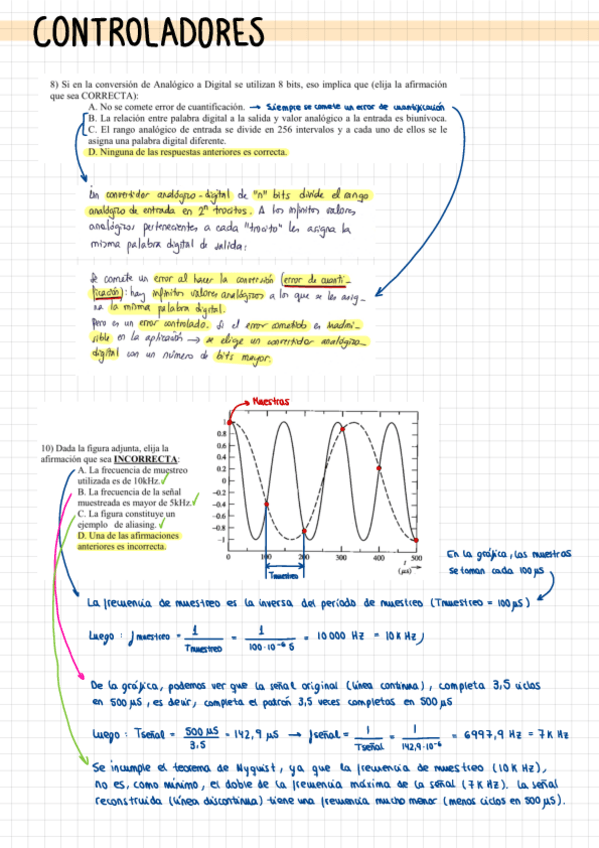 CONTROLADORES
8) Si en la conversión de Analógico a Digital se utilizan 8 bits, eso implica que (elija la afirmación
que sea CORRECTA):
A. No se comete error de cuantificación. → Siempre se comete un error de cuantificación
B. La relación entre palabra digital a la salida y valor analógico a la entrada es biunívoca.
C. El rango analógico de entrada se divide en 256 intervalos y a cada uno de ellos se le
asigna una palabra digital diferente.
D. Ninguna de las respuestas anteriores es correcta.
Un convertidor analógico-digital de "n" bits divide el rango
analógico de entrada en 2ⁿ trocitos. A los infinitos valores
analógicos pertenecientes a cada "trocito" les asigna la
misma palabra digital de salida.
Se comete un error al hacer la conversión (error de cuanti-
ficación): hay infinitos valores analógicos a los que se les asig-
na la misma palabra digital.
Pero es un error controlado. Si el error cometido es inadmi-
sible en la aplicación → se elige un convertidor analógico-
digital con un número de bits mayor.
Muestras
10) Dada la figura adjunta, elija la
afirmación que sea INCORRECTA:
A. La frecuencia de muestreo
utilizada es de 10kHz. ✓
B. La frecuencia de la señal
muestreada es mayor de 5kHz. ✓
C. La figura constituye un
ejemplo de aliasing. ✓
D. Una de las afirmaciones
anteriores es incorrecta.
1
0.8
0.6
0.4
0.2
0
-0.2
-0.4
-0.6
-0.8
-1
0 100 200 300 400 500
t
(μs)
Tmuestreo
En la gráfica, las muestras
se toman cada 100 μs
La frecuencia de muestreo es la inversa del período de muestreo (Tmuestreo = 100 μs)
Luego: fmuestreo = 1 / Tmuestreo = 1 / 100·10⁻⁶ s = 10000 Hz = 10 KHz
De la gráfica, podemos ver que la señal original (línea continua), completa 3,5 ciclos
en 500 μs, es decir, completa el patrón 3,5 veces completas en 500 μs
Luego: Tseñal = 500 μs / 3,5 = 142,9 μs → fseñal = 1 / Tseñal = 1 / 142,9·10⁻⁶ = 6997,9 Hz = 7K Hz
Se incumple el teorema de Nyquist, ya que la frecuencia de muestreo (10 K Hz),
no es, como mínimo, el doble de la frecuencia máxima de la señal (7 K Hz). La señal
reconstruida (línea discontinua) tiene una frecuencia mucho menor (menos ciclos en 500 μs).